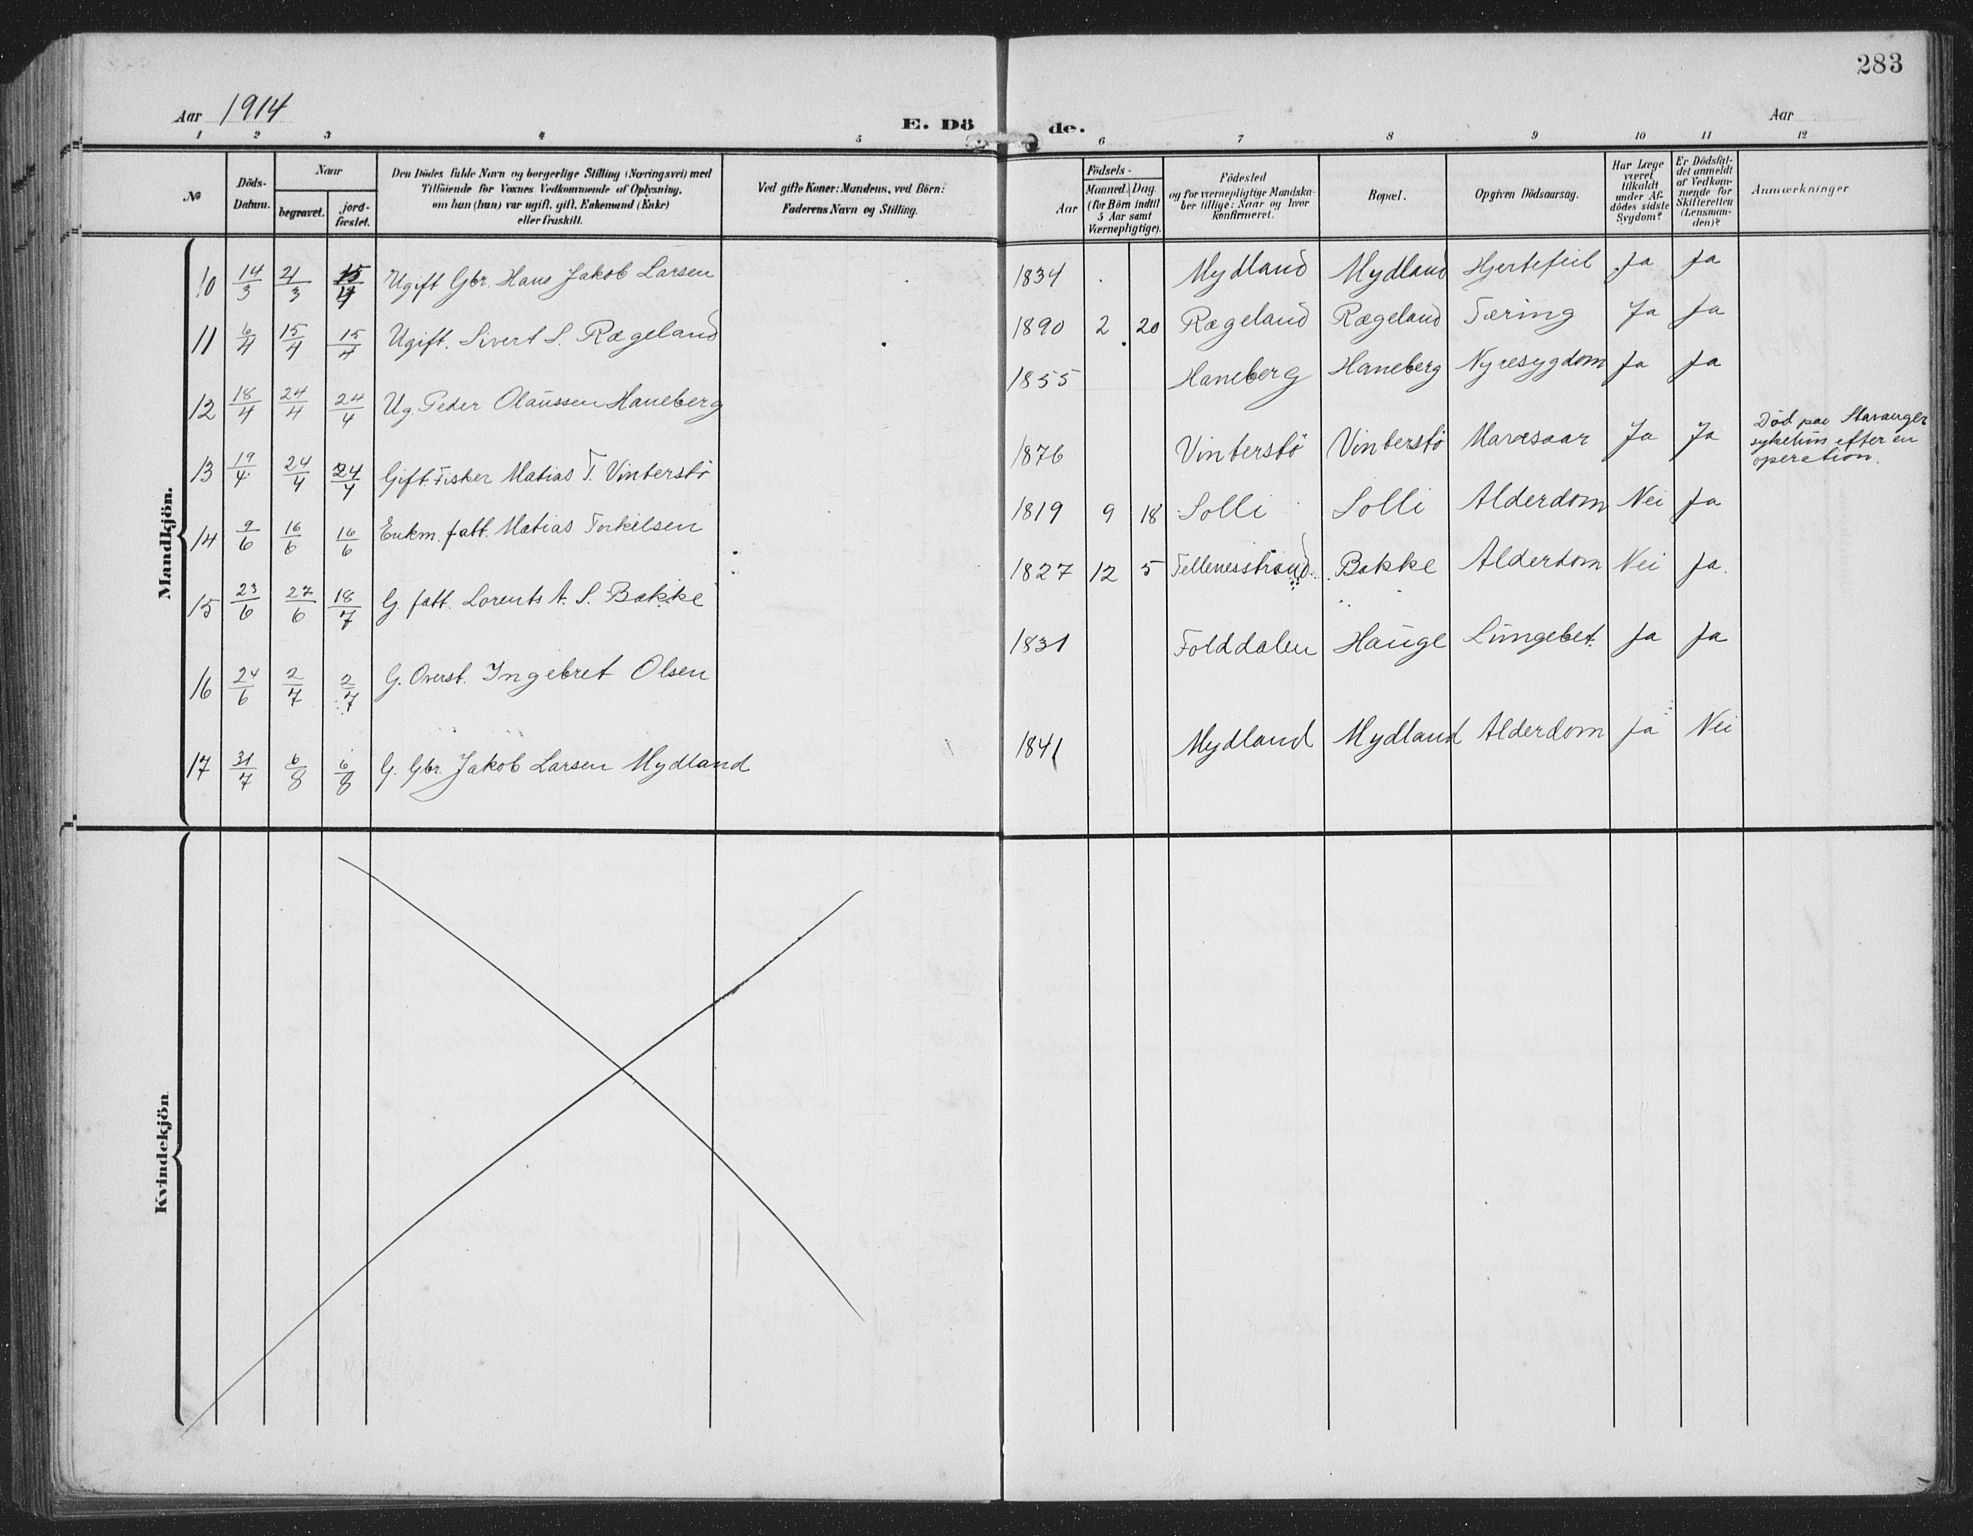 283
Aar 1914
E. Dö
de.
Aar
1 2 3 4 5 6 7 8 9 10 11 12
№
Döds-Datum.
Naar
begravet.
jord-fæstet.
Den Dödes fulde Navn og borgerlige Stilling (Næringsvei) med
Tilföiende for Voxnes Vedkommende af Oplysning,
om han (hun) var ugift, gift, Enkemand (Enke)
eller fraskilt.
Ved gifte Koner: Mandens, ved Börn:
Faderens Navn og Stilling.
Födsels-
Aar
Maaned. Dag.
(for Börn indtil
5 Aar samt
Værnepligtige).
Födested
og for værnepligtige Mandska-
ber tillige: Naar og hvor
konfirmeret.
Bopæl.
Opgiven Dödsaarsag.
Har Læge
været
tilkaldt
under Af-
dödes sidste
Sygdom?
Er Dödsfal-
det anmeldt
af Vedkom-
mende for
Skifteretten
(Lensman-
den)?
Anmærkninger
Mandkjön.
10 14/3 21/3 15/4 Ugift Gbr. Hans Jakob Larsen 1834 Mydland Mydland Hjertefeil Ja Ja
11 6/4 15/4 15/4 Ugift. Sivert S. Rægeland 1890 2 20 Rægeland Rægeland Tæring Ja Ja
12 18/4 24/4 24/4 Ug. Peder Olaussen Haneberg 1855 Haneberg Haneberg Nyresygdom Ja Ja
13 19/4 24/4 24/4 Gift. Fisker Matias T. Vinterstø 1876 Vinterstø Vinterstø Mavesaar Ja Ja Død paa Stavanger
sykehus efter en
operation.
14 9/6 16/6 16/6 Enkm. fatt. Matias Torkelsen 1819 9 18 Solli Solli Alderdom Nei Ja
15 23/6 27/6 18/7 G. fatt. Lorents A. S. Bakke 1827 12 5 Tellenesstrand. Bakke Alderdom Nei Ja.
16 24/6 2/7 2/7 G. Overst. Ingebret Olsen 1831 Folddalen Hauge Lungebet. Ja Ja
17 31/7 6/8 6/8 G. Gbr. Jakob Larsen Mydland 1841 Mydland Mydland Alderdom Ja Nei
Kvindekjön.